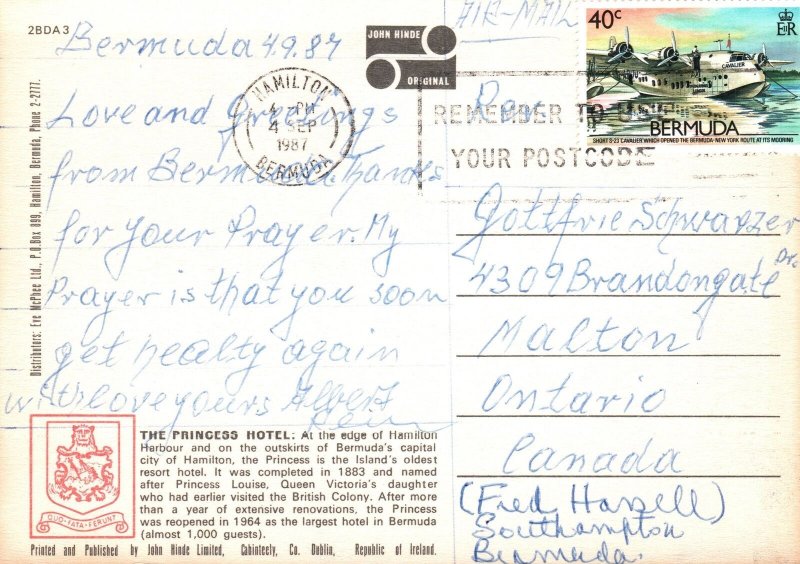 2BDA3
Bermuda 4.9.87
Love and Greetings
from Bermuda. Thanks
for your Prayer. My
Prayer is that you soon
get healty again
with love yours Albert
THE PRINCESS HOTEL: At the edge of Hamilton
Harbour and on the outskirts of Bermuda's capital
city of Hamilton, the Princess is the Island's oldest
resort hotel. It was completed in 1883 and named
after Princess Louise, Queen Victoria's daughter
who had earlier visited the British Colony. After more
than a year of extensive renovations, the Princess
was reopened in 1964 as the largest hotel in Bermuda
(almost 1,000 guests).
QUO FATA FERUNT
Printed and Published by John Hinde Limited, Cabinteely, Co. Dublin, Republic of Ireland.
Distributors: Eve McPhee Ltd., P.O. Box 899, Hamilton, Bermuda, Phone 2-2777.
JOHN HINDE
ORIGINAL
HAMILTON
4 PM
4 SEP
1987
BERMUDA
REMEMBER TO
YOUR POSTCODE
AIR-MAIL
40c
EIIR
CAVALIER
BERMUDA
SHORT S-23 CAVALIER WHICH OPENED THE BERMUDA-NEW YORK ROUTE AT ITS MOORING
Rev
Gottfrie Schwarzer
4309 Brandongate Dr.
Malton
Ontario
Canada
(Fred Hassell)
Southampton
Bermuda.